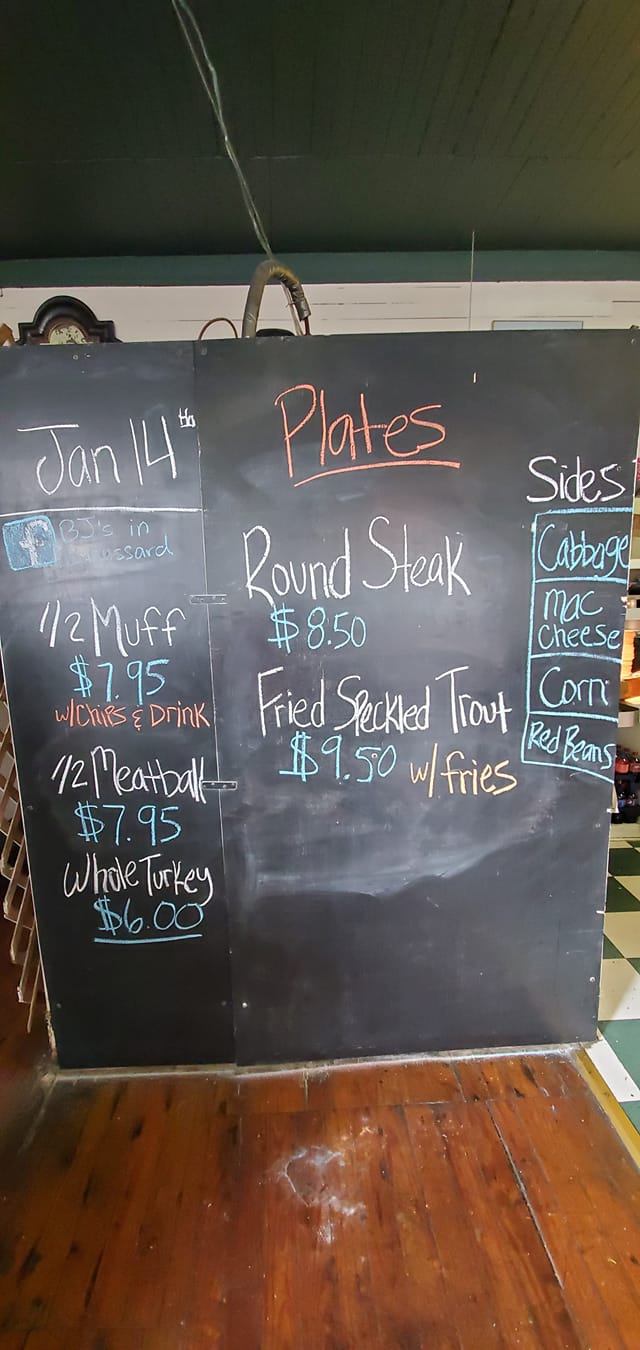 Jan 14th
f BJ's in
1/2 Muff
$7.95
w/Chips & Drink
1/2 Meatball
$7.95
Whole Turkey
$6.00
Plates
Round Steak
$8.50
Fried Speckled Trout
$9.50 w/fries
Sides
Cabbage
mac
cheese
Corn
Red Beans